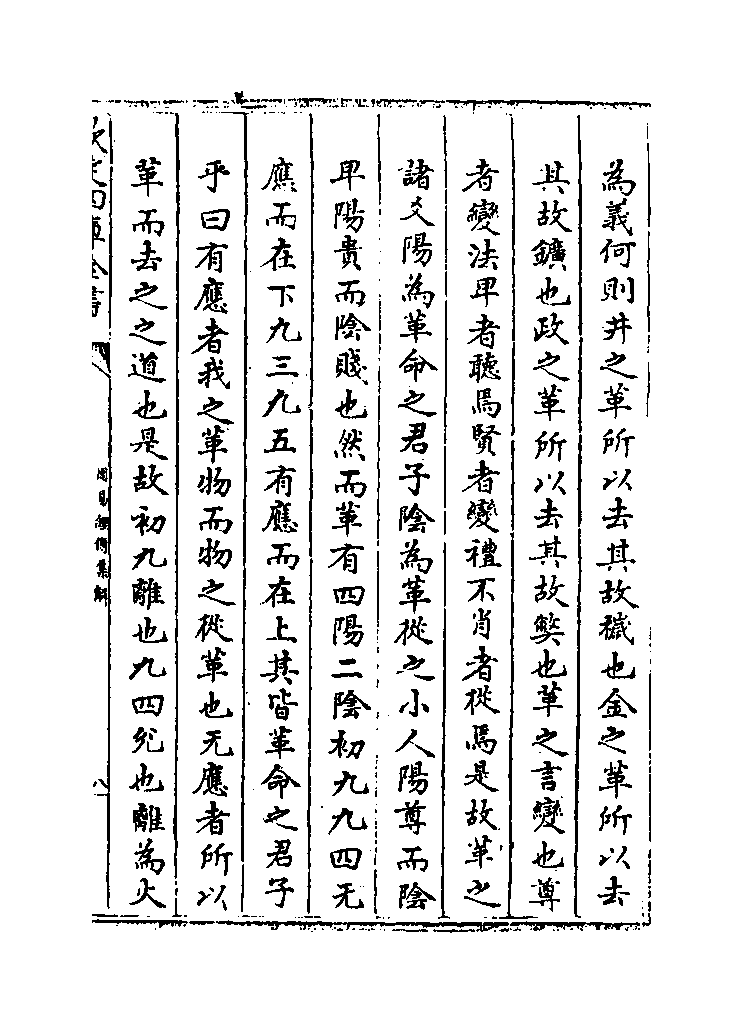 為義何則井之革所以去其故穢也金之革所以去
其故鑛也政之革所以去其故弊也革之言變也尊
者變法卑者聽焉賢者變禮不肖者從焉是故革之
諸爻陽為革命之君子陰為革從之小人陽尊而陰
卑陽貴而陰賤也然而革有四陽二陰初九九四无
應而在下九三九五有應而在上其皆革命之君子
乎曰有應者我之革物而物之從革也无應者所以
革而去之之道也是故初九離也九四兌也離為火
欽定四庫全書
周易經傳集解
八